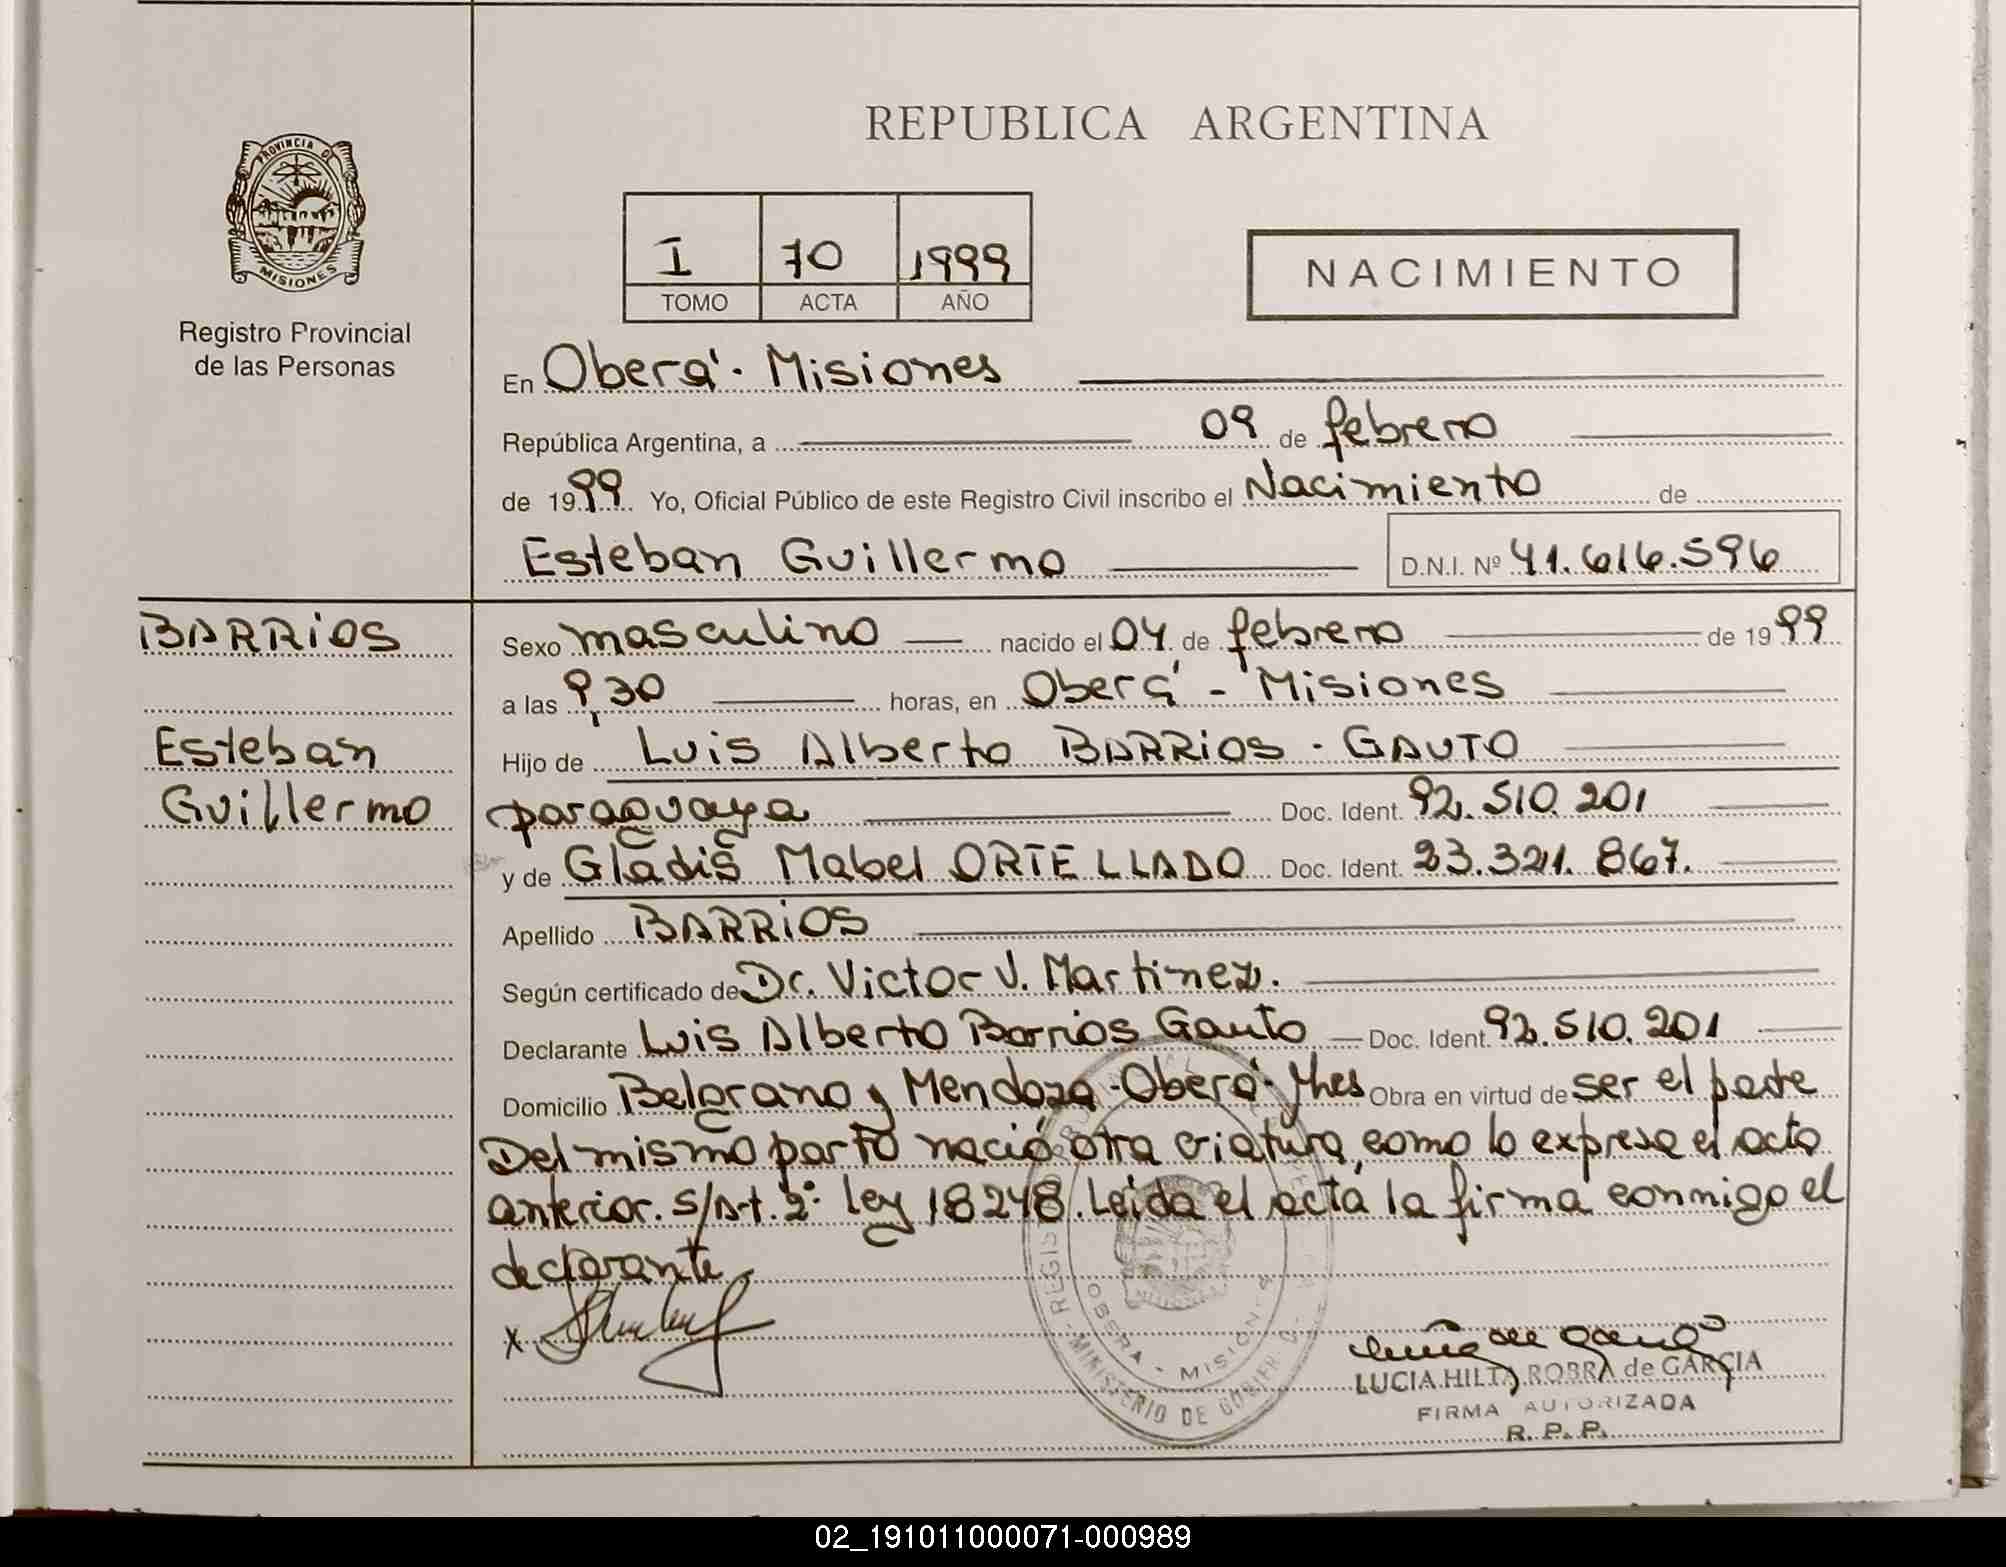 REPUBLICA ARGENTINA
PROVINCIA DE
MISIONES
Registro Provincial
de las Personas
I 70 1999
TOMO ACTA AÑO
NACIMIENTO
En Oberá - Misiones
República Argentina, a 09 de febrero
de 1999 Yo, Oficial Público de este Registro Civil inscribo el Nacimiento de
Esteban Guillermo D.N.I. Nº 41.616.596
BARRIOS
Esteban
Guillermo
Sexo masculino nacido el 04 de febrero de 1999
a las 9,30 horas, en Oberá - Misiones
Hijo de Luis Alberto BARRIOS - GAUTO
paraguaya Doc. Ident. 92.510.201
y de Gladis Mabel ORTELLADO Doc. Ident. 23.321.867.
Apellido BARRIOS
Según certificado de Dr. Victor J. Martinez.
Declarante Luis Alberto Barrios Gauto Doc. Ident. 92.510.201
Domicilio Belgrano y Mendoza - Oberá - Mnes Obra en virtud de ser el padre
Del mismo parto nació otra criatura, como lo expresa el acta
anterior. S/Art. 2º ley 18248. Leída el acta la firma conmigo el
declarante
x
OBERA - MISIONES
MINISTERIO DE GOBIERNO
LUCIA HILTA ROBRA de GARCIA
FIRMA AUTORIZADA
R. P. P.
02_191011000071-000989